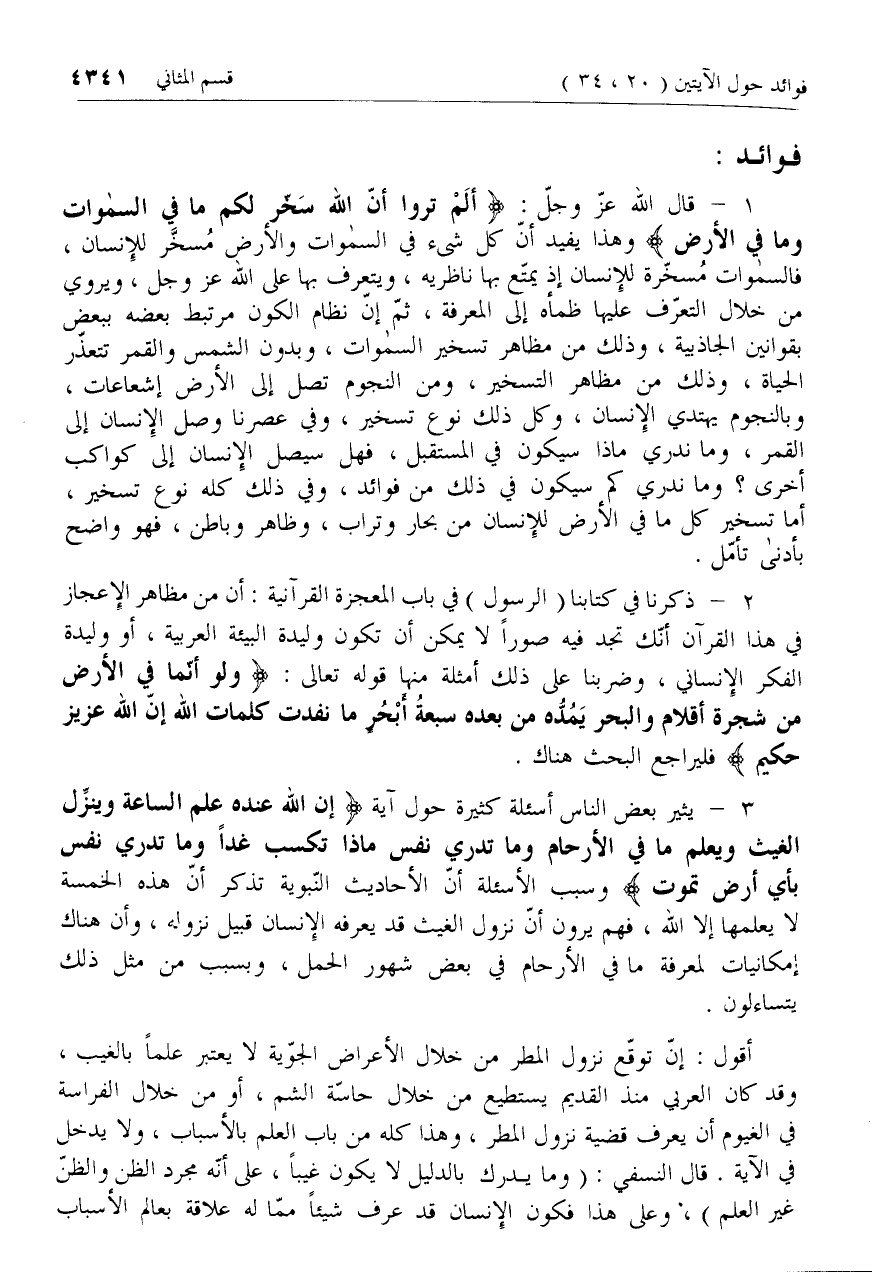 فوائد حول الآيتين ( ٢٠ ، ٣٤ ) قسم المثاني ٤٣٤١
فـوائـد :
١ – قال الله عزّ وجلّ : ﴿ ألَمْ تروا أنّ الله سَخّر لكم ما في السمٰوات
وما في الأرض ﴾ وهذا يفيد أنّ كل شيء في السمٰوات والأرض مُسخَّر للإنسان ،
فالسمٰوات مُسخّرة للإنسان إذ يمتّع بها ناظريه ، ويتعرف بها على الله عز وجل ، ويروي
من خلال التعرّف عليها ظمأه إلى المعرفة ، ثمّ إنّ نظام الكون مرتبط بعضه ببعض
بقوانين الجاذبية ، وذلك من مظاهر تسخير السمٰوات ، وبدون الشمس والقمر تتعذّر
الحياة ، وذلك من مظاهر التسخير ، ومن النجوم تصل إلى الأرض إشعاعات ،
وبالنجوم يهتدي الإنسان ، وكل ذلك نوع تسخير ، وفي عصرنا وصل الإنسان إلى
القمر ، وما ندري ماذا سيكون في المستقبل ، فهل سيصل الإنسان إلى كواكب
أخرى ؟ وما ندري كم سيكون في ذلك من فوائد ، وفي ذلك كله نوع تسخير ،
أما تسخير كل ما في الأرض للإنسان من بحار وتراب ، وظاهر وباطن ، فهو واضح
بأدنىٰ تأمّل .
٢ – ذكرنا في كتابنا ( الرسول ) في باب المعجزة القرآنية : أن من مظاهر الإعجاز
في هذا القرآن أنّك تجد فيه صوراً لا يمكن أن تكون وليدة البيئة العربية ، أو وليدة
الفكر الإنساني ، وضربنا على ذلك أمثلة منها قوله تعالى : ﴿ ولو أنّما في الأرض
من شجرة أقلام والبحر يَمُدُّه من بعده سبعةُ أَبْحُرٍ ما نفدت كلمات الله إنّ الله عزيز
حكيم ﴾ فليراجع البحث هناك .
٣ – يثير بعض الناس أسئلة كثيرة حول آية ﴿ إن الله عنده علم الساعة وينزِّل
الغيث ويعلم ما في الأرحام وما تدري نفس ماذا تكسب غداً وما تدري نفس
بأي أرض تموت ﴾ وسبب الأسئلة أنّ الأحاديث النّبوية تذكر أنّ هذه الخمسة
لا يعلمها إلا الله ، فهم يرون أنّ نزول الغيث قد يعرفه الإنسان قبيل نزوله ، وأن هناك
إمكانيات لمعرفة ما في الأرحام في بعض شهور الحمل ، وبسبب من مثل ذلك
يتساءلون .
أقول : إنّ توقّع نزول المطر من خلال الأعراض الجوّية لا يعتبر علماً بالغيب ،
وقد كان العربي منذ القديم يستطيع من خلال حاسّة الشم ، أو من خلال الفراسة
في الغيوم أن يعرف قضية نزول المطر ، وهذا كله من باب العلم بالأسباب ، ولا يدخل
في الآية . قال النسفي : ( وما يـدرك بالدليل لا يكون غيباً ، على أنّه مجرد الظن والظنّ
غير العلم ) ، وعلى هذا فكون الإنسان قد عرف شيئاً ممّا له علاقة بعالم الأسباب